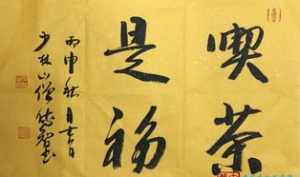 喫茶
是福
丙申秋月吉日
少林山僧书